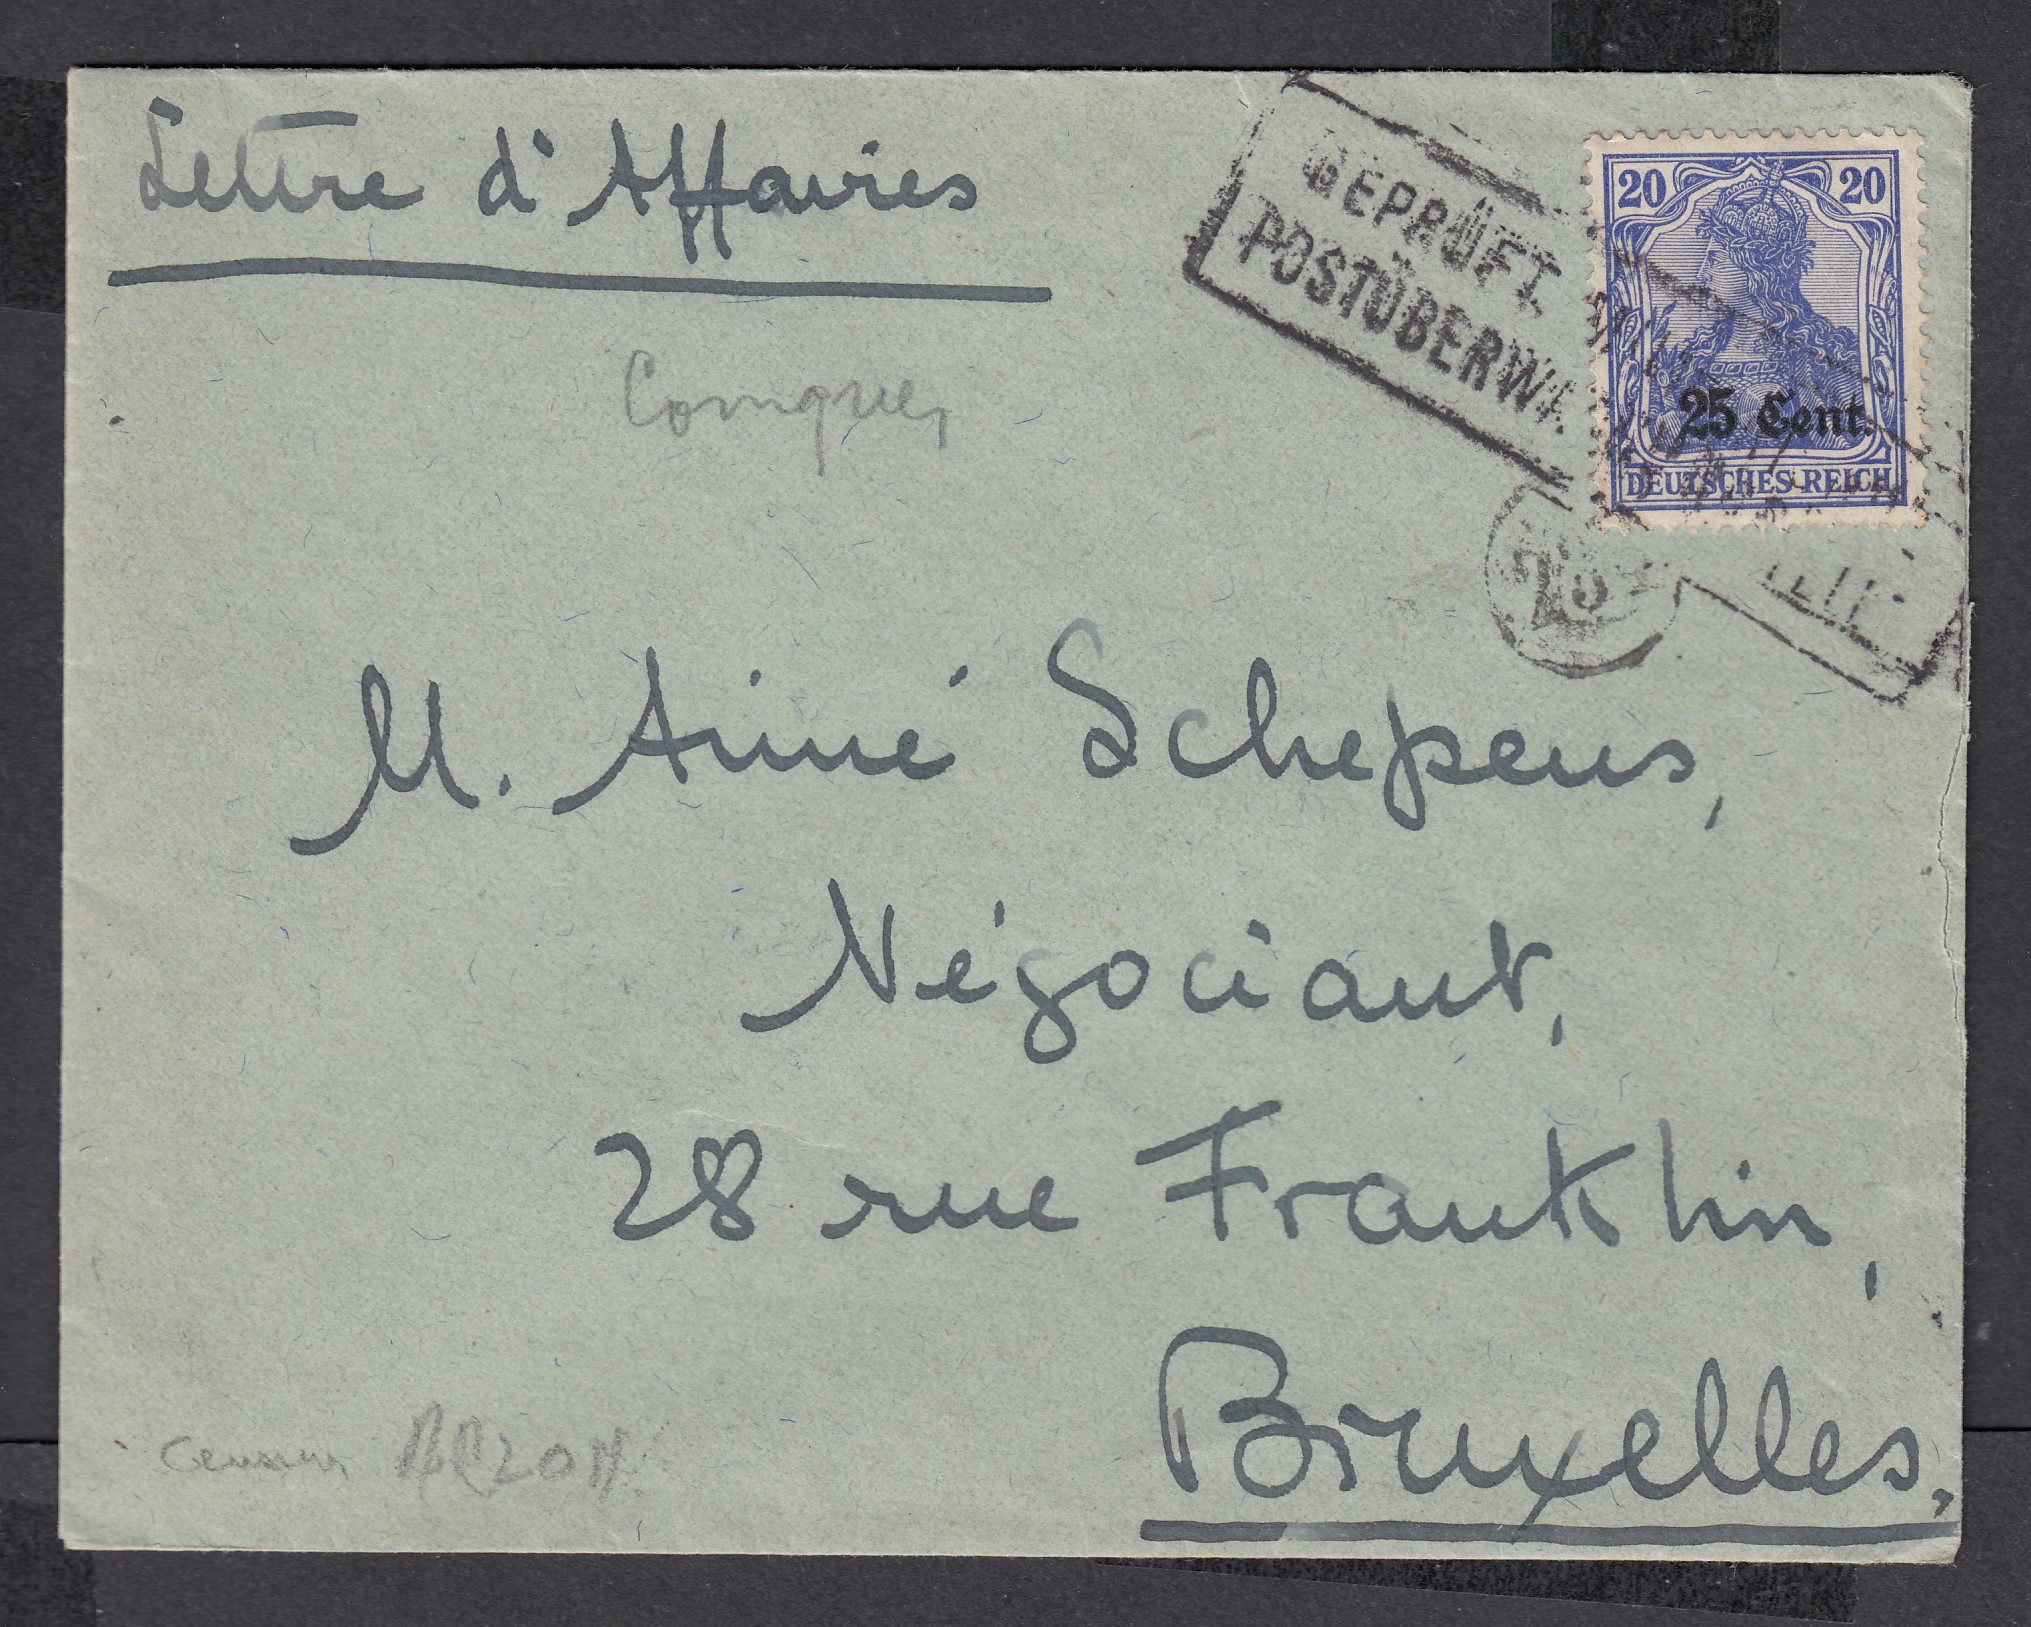 Lettre d'Affaires
GEPRÜFT
POSTÜBERWA
20 20
25 Cent.
DEUTSCHES REICH
M. Aimé Schepens,
Négociant,
28 rue Franklin,
Bruxelles,
censeur